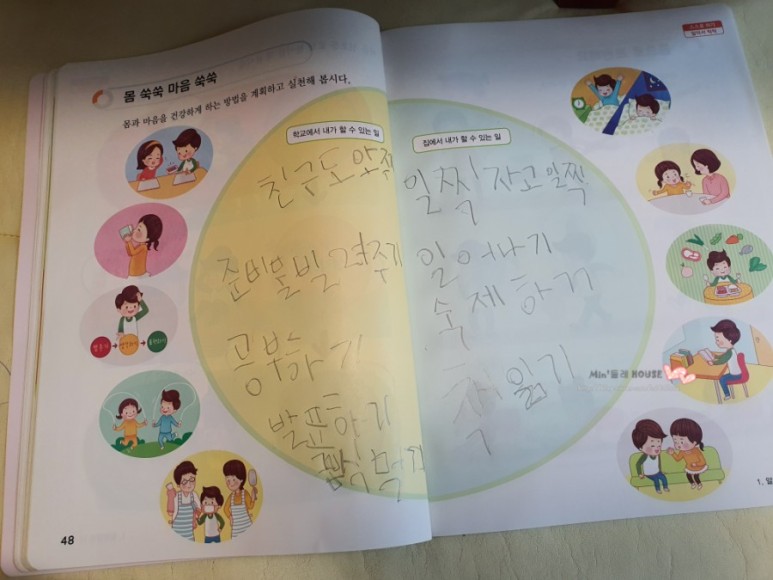 몸 쑥쑥 마음 쑥쑥
몸과 마음을 건강하게 하는 방법을 계획하고 실천해 봅시다.
학교에서 내가 할 수 있는 일
친구도와주
준비물빌려주기
공부하기
발표하기
먹기
48
집에서 내가 할 수 있는 일
일찍 자고 일찍
일어나기
숙제하기
책 읽기
Min'둘레 HOUSE
1. 알